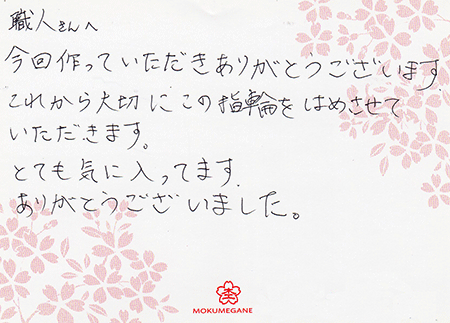 職人さんへ
今回作っていただきありがとうございます。
これから大切にこの指輪をはめさせて
いただきます。
とても気に入ってます。
ありがとうございました。
MOKUMEGANE